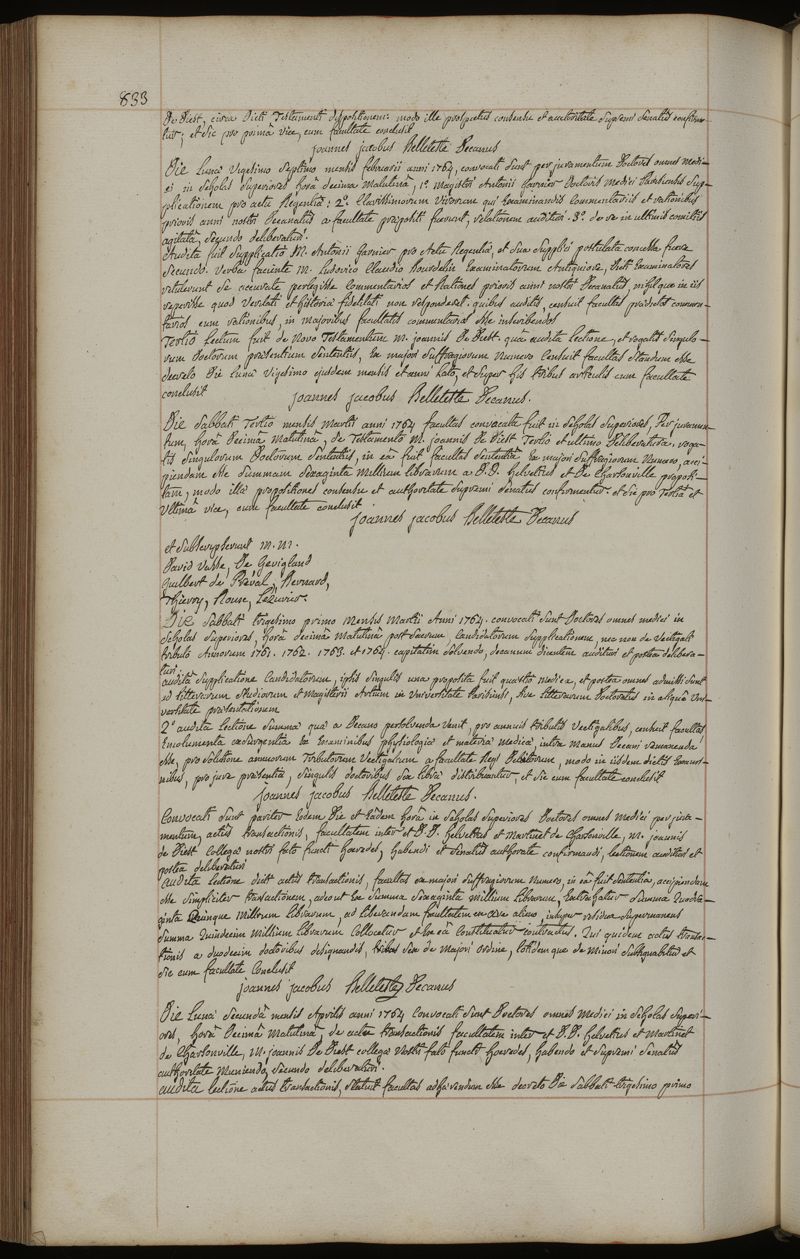 833
De Diest, circa dicti Testamenti dispositionem: modo ille prospectus consensu et authoritate supremi senatus confirme-
tur; et sic pro primâ vice, cum facultate conclusit
joannes jacobus Belleteste Decanus
Die Lunæ vigesimo septimo mensis februarii anni 1764, convocati sunt per juramentum Doctores omnes medi-
ci in scholas superiores horâ decima matutinâ, 1º. magistri Antonii Garnier Doctoris medici Parisiensis sup-
plicationem pro actu Regentiæ: 2º. Clarissimorum virorum qui examinandis commentariis et rationibus
prioris anni nostri Decanatûs a facultate præpositi fuerunt, relationem audituri. 3º. de re in ultimis comitiis
agitatâ, secundo deliberaturi.
Audita fuit supplicatio M. Antonii Garnier pro Actu Regentiæ, et sua supplici postulata concessa fuere
Secundo. verba faciente M. Ludovico Claudio Bourdelin Examinatorum Antiquiore, dicti Examinatores
retulerunt se accurate perlegisse commentarios et Rationes prioris anni nostri Decanatûs nihilque in iis
reperisse quod veritati et historiæ fidelitati non responderet. quibus auditis, censuit facultas prædictos commen-
tarios cum rationibus, in majoribus facultatis commentariis esse inscribendos
Tertio Lectum fuit de novo Testamentum M. joannis De Diest. quâ auditâ Lectione, et rogatis singulo-
rum Doctorum præsentium sententiis, Ex majori suffragiorum numero Censuit facultas standum esse
decreto die Lunæ vigesimo ejusdem mensis et anni lato, et super his tribus articulis cum facultate
conclusit joannes jacobus Belleteste Decanus.
Die Sabbati Tertio mensis Martii anni 1764 facultas convocata fuit in scholas superiores, Per juramen-
tum, horâ Decimâ matutinâ, de Testamento M. joannis De Diest Tertio et ultimo deliberatura. roga-
tis singulorum Doctorum sententiis, in eâ fuit facultas sententiâ Ex majori suffragiorum numero, acci-
piendam esse summam sexaginta millium librarum a D.D. helvetius et De Chartonville proposi-
tam, modo illa propositiones consensu et authoritate supremi senatus confirmentur. et sic pro Tertiâ et
ultimâ vice, cum facultate conclusit
joannes jacobus Belleteste Decanus
et subscripserunt M. M.
David Vasse, De Gevigland
Guilbert de Préval, Bernard,
Thierry, Roux, Lezurier.
Die Sabbati trigesimo primo mensis Martii Anni 1764. convocati sunt Doctores omnes medici in
scholas superiores, horâ decimâ matutinâ post sacrum, Candidatorum supplicationem, nec non de vectigali
tributo Annorum 1761. 1762. 1763. et 1764. capitatim solvendo, decanum dicentem audituri et postea delibera-
turi.
auditâ supplicatione Candidatorum, ipsis singulis una proposita fuit quæstio medica, et postea omnes admissi sunt
ad litterarum studiorum et magisterii Artium in universitate Parisiensi, sive litterarum Doctoratus in aliquâ Uni-
versitate præsentationem
2º auditâ Lectione summæ quæ a Decano persolvenda venit, pro annuis tributis vectigalibus, censuit facultas,
Emolumenta exsurgentia ex Examinibus physiologiæ et materiæ medicæ, intra manus Decani remanenda
esse, pro solutione annuorum Tributorum vectigalium a facultate Regi Debitorum, modo in iisdem dictis Exami-
nibus, pro jure præsentiæ, singulis doctoribus sex libræ distribuantur, et sic cum facultate conclusit
joannes jacobus Belleteste Decanus.
Convocati sunt pariter eâdem Die et Eâdem horâ in Scholas superiores Doctores omnes Medici per jura-
mentum, actus transactionis, facultatem inter et D.D. helvetius et Martinet de Chartonville, M. joannis
de Diest collegæ nostri fato functi hæredes, habendi et senatûs authoritate confirmandi, lectionem audituri et
postea deliberaturi
auditâ Lectione dicti actus transactionis, facultas ex majori suffragiorum numero, in eâ fuit sententiâ, accipiendam
esse simpliciter transactionem, adeout Ex summa sexaginta millium librarum, Extrahatur summa quadra-
ginta quinque millium librarum, ad liberandam facultatem ex ære alieno, integre residua supermanens
summa quindecim millium librarum Collocetur et Ex eâ Constituatur contractus. Qui quidem actus transac-
tionis a duodecim doctoribus designandis, tribus sex de majori ordine, totidemque de minori subsignabitur et
sic cum facultate Conclusit
joannes jacobus Belleteste Decanus
Die Lunæ secundâ mensis Aprilis anni 1764 Convocati sunt Doctores omnes Medici in scholas superi-
ores, horâ Decimâ matutinâ, de actu transactionis facultatem inter et D.D. helvetius et Martinet
de Chartonville, M. joannis De Diest collegæ nostri fato functi hæredes, habendo et supremi senatûs
authoritate muniendo, secundo deliberaturi.
auditâ Lectione actus transactionis, statuit facultas adhærendum esse decreto Die Sabbati trigesimo primo